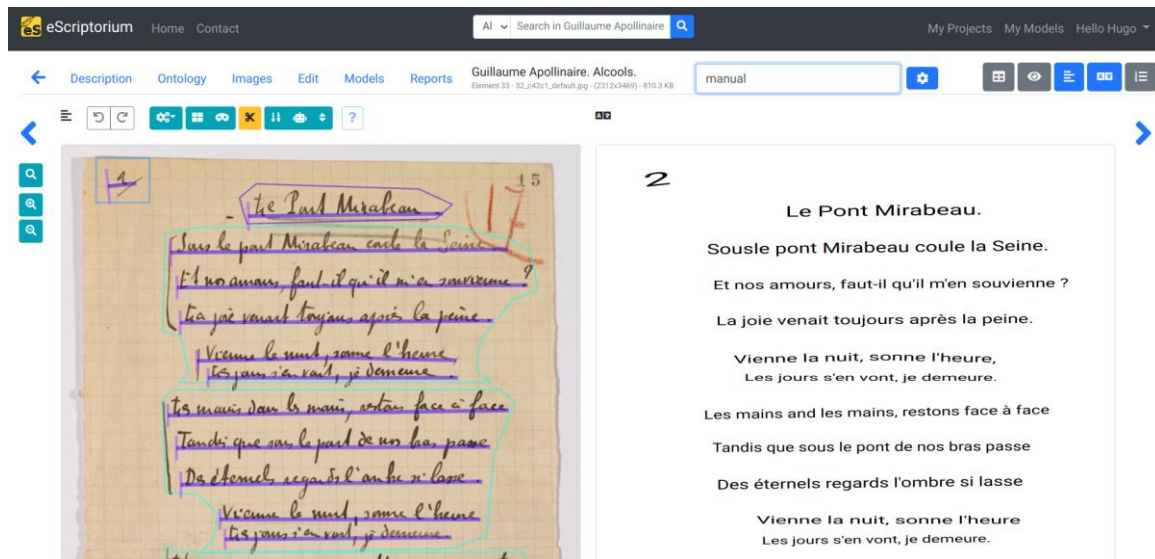 eScriptorium Home Contact Al Search in Guillaume Apollinaire My Projects My Models Hello Hugo
Description Ontology Images Edit Models Reports Guillaume Apollinaire. Alcools. manual
Element 33 - 32_c42c1_default.jpg - (2312x3469) - 810.3 KB
?
15
17
Le Pont Mirabeau
Sous le pont Mirabeau coule la Seine.
Et nos amours, faut-il qu'il m'en souvienne ?
La joie venait toujours après la peine.
Vienne la nuit, sonne l'heure,
Les jours s'en vont, je demeure.
Les mains dans les mains, restons face à face
Tandis que sous le pont de nos bras passe
Des éternels regards l'onde si lasse.
Vienne la nuit, sonne l'heure
Les jours s'en vont, je demeure.
2
Le Pont Mirabeau.
Sousle pont Mirabeau coule la Seine.
Et nos amours, faut-il qu'il m'en souvienne ?
La joie venait toujours après la peine.
Vienne la nuit, sonne l'heure,
Les jours s'en vont, je demeure.
Les mains and les mains, restons face à face
Tandis que sous le pont de nos bras passe
Des éternels regards l'ombre si lasse
Vienne la nuit, sonne l'heure
Les jours s'en vont, je demeure.